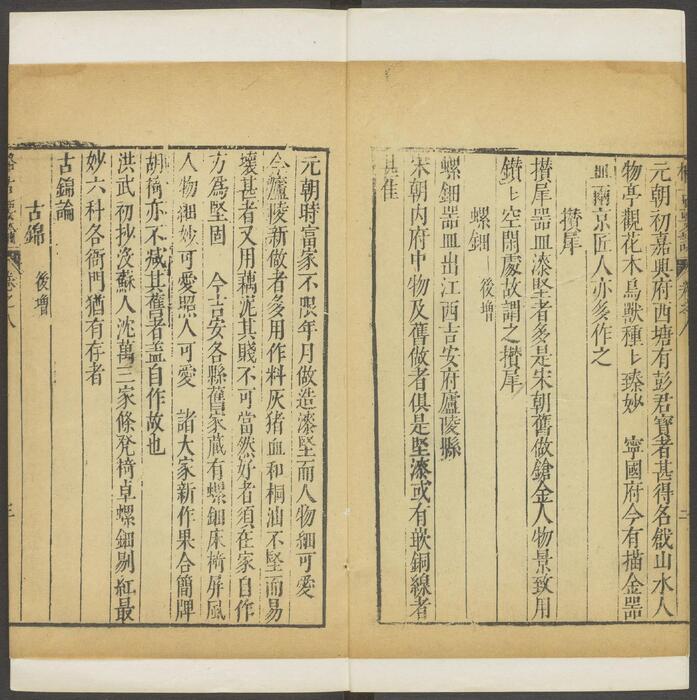 元朝初嘉興府西塘有彭君寶者甚得名戧山水人
物亭觀花木鳥獸種〻臻妙　寧國府今有描金器
皿兩京匠人亦多作之
攅犀
攅犀器皿漆堅者多是宋朝舊做鎗金人物景致用
鑚〻空閒處故謂之攅犀
螺鈿　後增
螺鈿器皿出江西吉安府廬陵縣
宋朝内府中物及舊做者俱是堅漆或有嵌銅線者
甚佳
元朝時富家不限年月做造漆堅而人物細可愛
今廬陵新做者多用作料灰猪血和桐油不堅而易
壞甚者又用藕泥其賤不可當然好者須在家自作
方爲堅固　今吉安各縣舊家藏有螺鈿床椅屏風
人物細妙可愛照人可愛　諸大家新作果合簡牌
胡椅亦不减其舊者盖自作故也
洪武初抄没蘇人沈萬三家條凳椅卓螺鈿剔紅最
妙六科各衙門猶有存者
古錦論
古錦　後增
卷之八
三